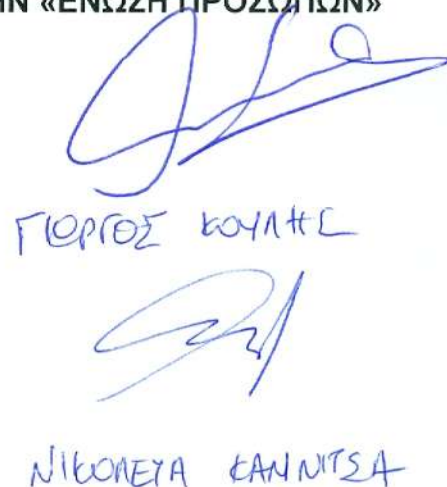 «ΕΝΩΣΗ ΠΡΟΣΩΠΩΝ»
ΓΙΩΡΓΟΣ ΚΟΥΛΗΣ
ΝΙΚΟΛΕΤΑ